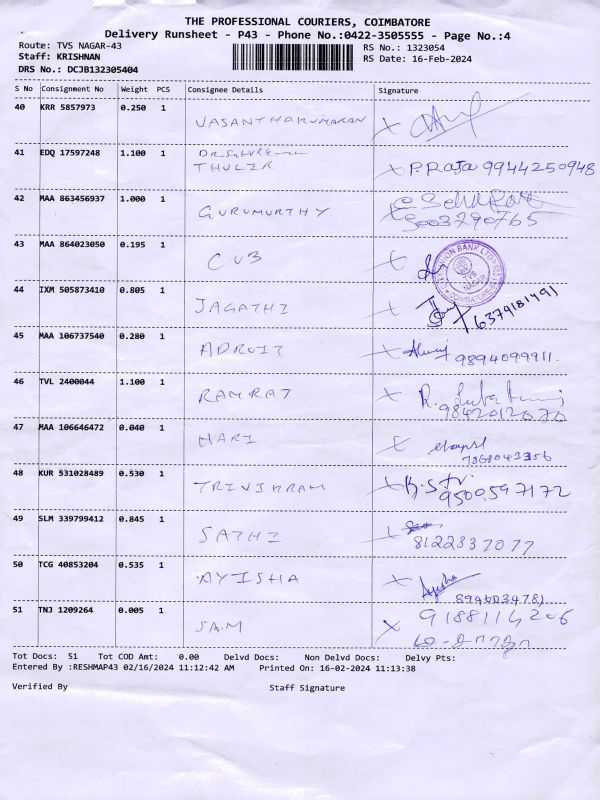 THE PROFESSIONAL COURIERS, COIMBATORE
Delivery Runsheet - P43 - Phone No.:0422-3505555 - Page No.:4
Route: TVS NAGAR-43 RS No.: 1323054
Staff: KRISHNAN RS Date: 16-Feb-2024
DRS No.: DCJB132305404
S No Consignment No Weight PCS Consignee Details Signature
40 KRR 5857973 0.250 1 VASANTHAKUMARAN X
41 EDQ 17597248 1.100 1 THULIR X P. Raja 9944250948
42 MAA 863456937 1.000 1 GURUMURTHY
43 MAA 864023050 0.195 1 CUB X
TVS NAGAR
44 IXM 505873410 0.805 1 JAGATHI X
6379181491
45 MAA 106737540 0.280 1 ADROIT X 9894099911.
46 TVL 2400044 1.100 1 RAMRAJ X R.
9842012070
47 MAA 106646472 0.040 1 HARI X
7868043356
48 KUR 531028489 0.530 1 TRIVIKRAM X
9500597172
49 SLM 339799412 0.845 1 SATHI X
8122337077
50 TCG 40853204 0.535 1 AYISHA X Ayisha
51 TNJ 1209264 0.005 1 SAM X 9188114206
Tot Docs: 51 Tot COD Amt: 0.00 Delvd Docs: Non Delvd Docs: Delvy Pts:
Entered By :RESHMAP43 02/16/2024 11:12:42 AM Printed On: 16-02-2024 11:13:38
Verified By Staff Signature